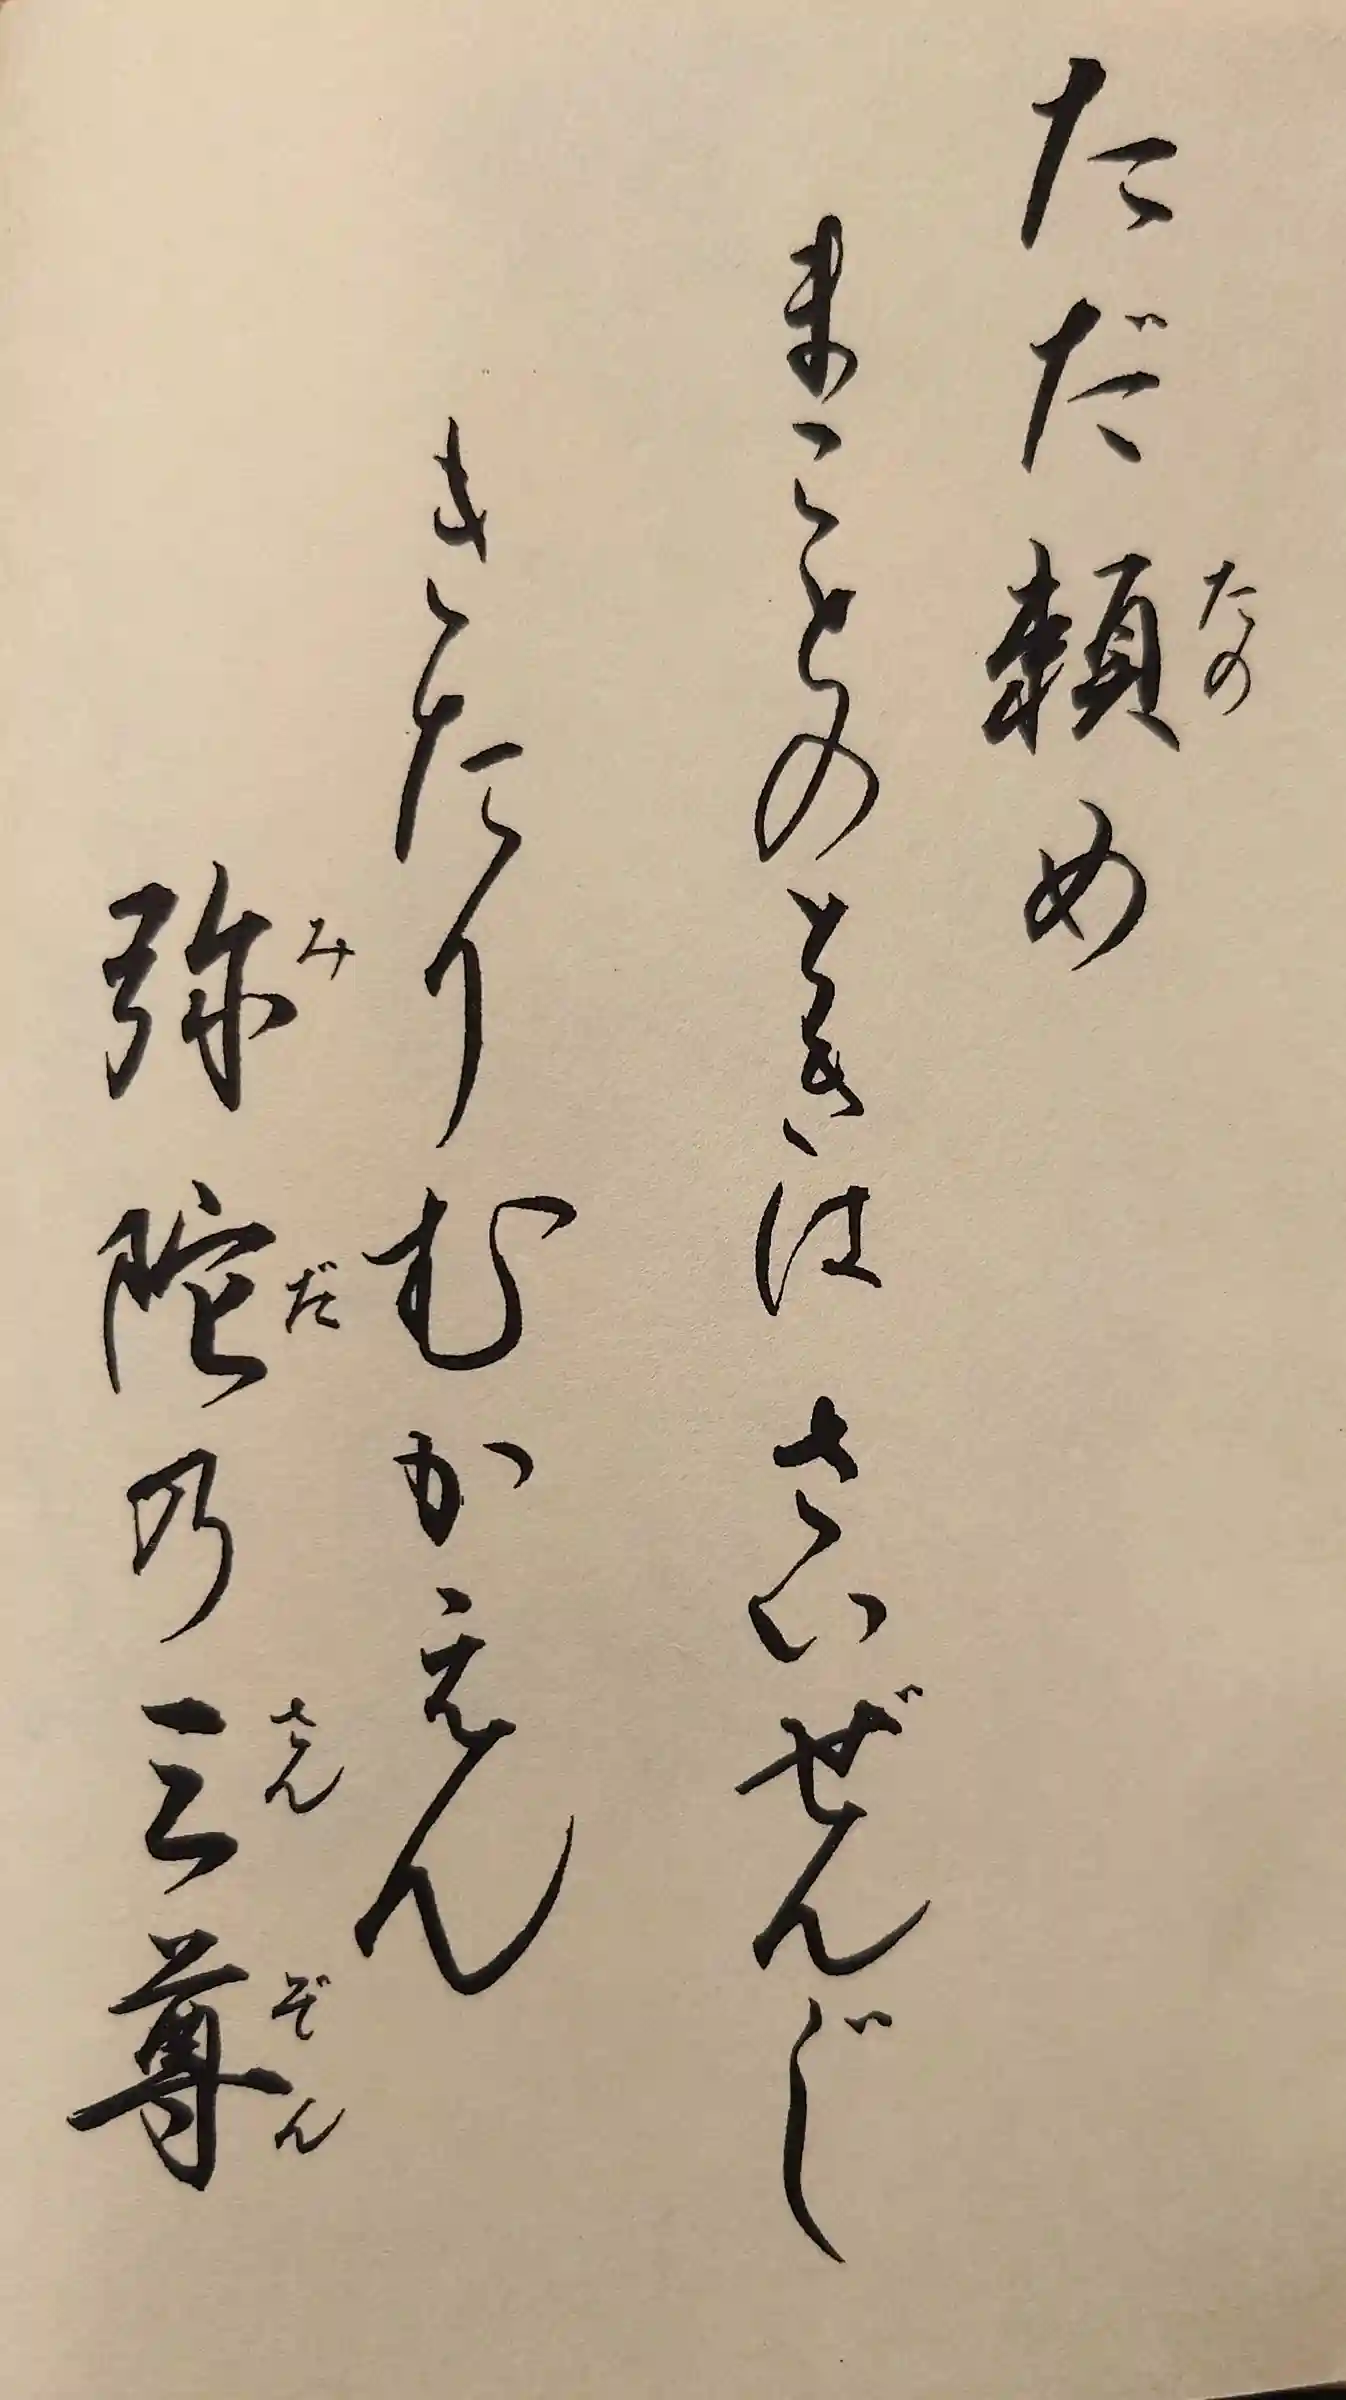 ただ頼め
たの
まことのときは さいぜんじ
きたりむかえん
弥陀乃三尊
み だ さん ぞん